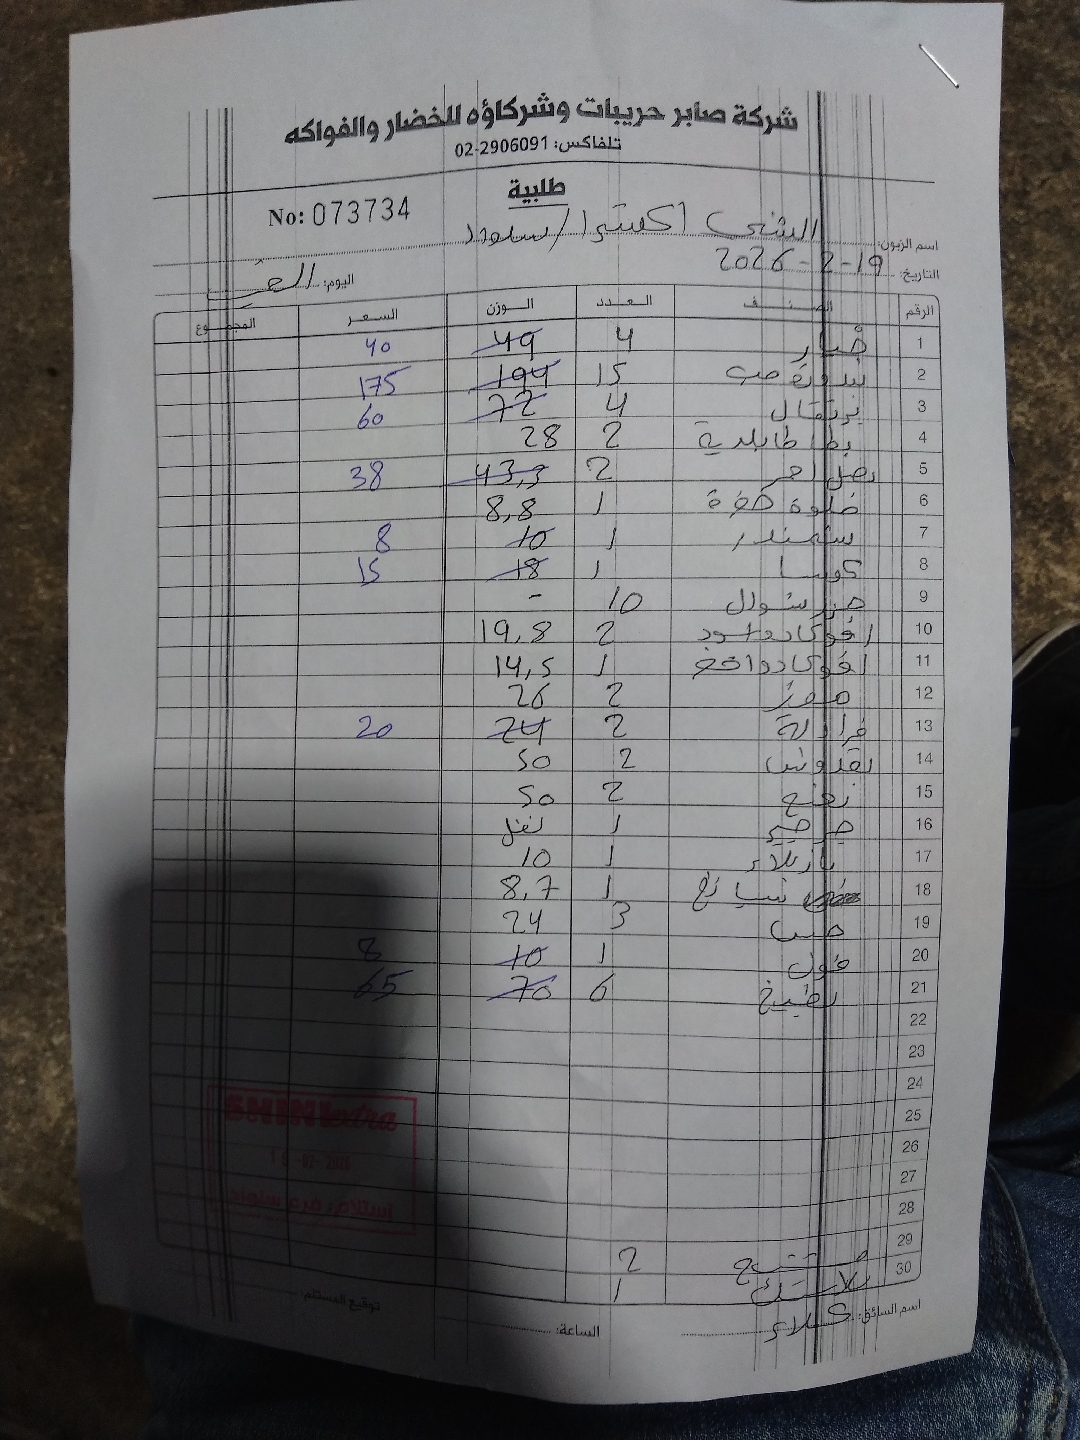 شركة صابر حريبات وشركاؤه للخضار والفواكه
تلفاكس: 02-2906091
طلبية
No: 073734
اسم الزبون: الشني اكسترا / سلواد
التاريخ: 19-2-2026
اليوم:
الرقم الصنف العدد الوزن السعر المجموع
1 خيار 4 49 40
2 بندورة حب 15 194 175
3 برتقال 4 72 60
4 بطاطا بلدية 2 28
5 بصل احمر 2 43,3 38
6 حلوة 1 8,8
7 شمندر 1 10 8
8 كوسا 1 18 15
9 جزر شوال 10 -
10 افوكادو اسود 2 19,8
11 افوكادو اخضر 1 14,5
12 موز 2 26
13 فراولة 2 24 20
14 بقدونس 2 50
15 نعنع 2 50
16 جرجير 1
17 بازيلاء 1 10
18 سبانخ 1 8,7
19 3 24
20 فول 1 10 8
21 بطيخ 6 70 65
22
23
24
25
26
27
28
29 2
30 بلاستك 1
SHINI extra
استلام: فرع سلواد
توقيع المستلم:
الساعة:
اسم السائق: علاء